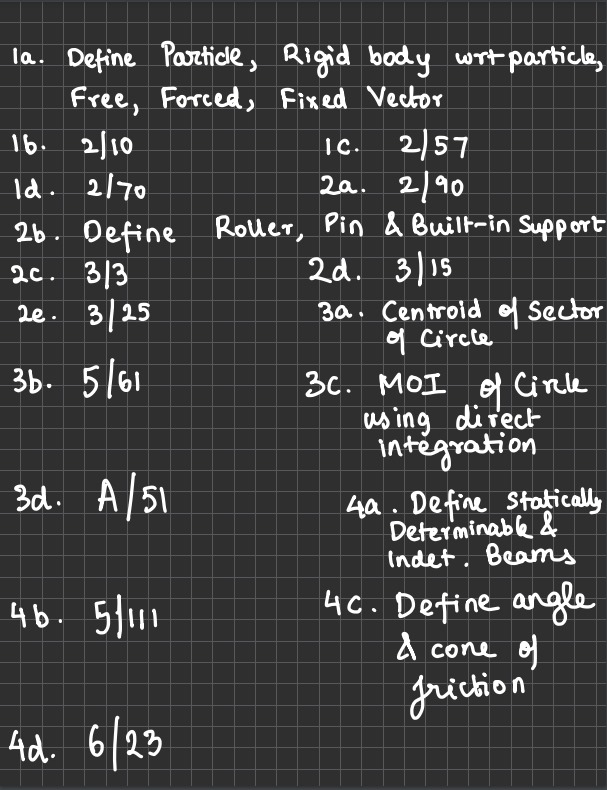 1a. Define Particle, Rigid body wrt particle,
Free, Forced, Fixed Vector
1b. 2/10 1c. 2/57
1d. 2/70 2a. 2/90
2b. Define Roller, Pin & Built-in Support
2c. 3/3 2d. 3/15
2e. 3/25 3a. Centroid of Sector
of Circle
3b. 5/61 3c. MOI of Circle
using direct
integration
3d. A/51 4a. Define Statically
Determinable &
Indet. Beams
4b. 5/111 4c. Define angle
& cone of
friction
4d. 6/23